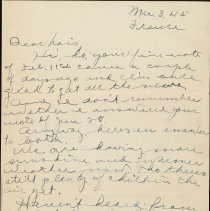 Mar. 3, 45
France
Dear Lois,
Hi, ho, your fine note
of Feb. 11th came a couple
of days ago and I'm sure
glad to get all the news
and be don't remember
whether I answered your
note of Jan 28.
Anyway heres an answer
to both,
We are having more
sunshine and warmer
weather now. Tho theres
still plenty of chill in the
air yet.
Haven't heard from